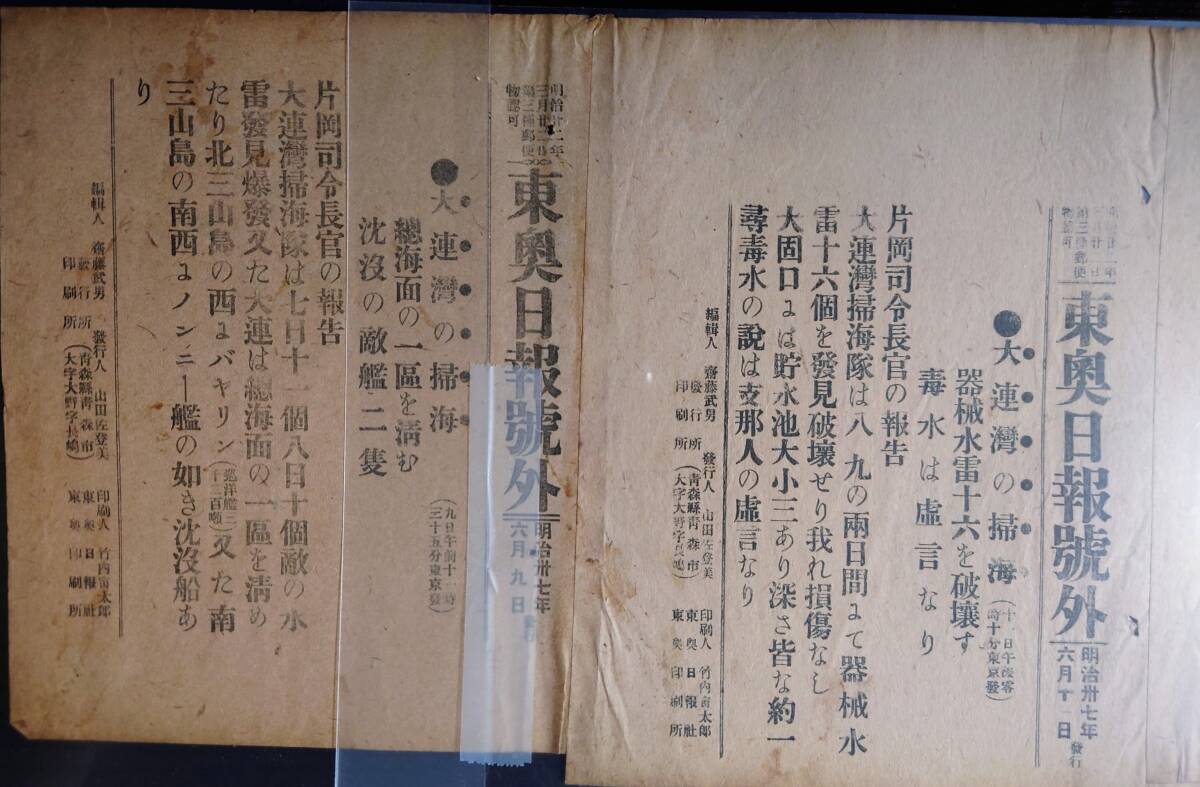 明治廿二年
三月廿二日
第三種郵便
物認可
東奧日報號外
明治卅七年
六月十一日
發行
●大連灣の掃海
時十分東京發)
器械水雷十六を破壞す
毒水は虛言なり
片岡司令長官の報告
大連灣掃海隊は八、九の兩日間にて器械水
雷十六個を發見破壞せり我れ損傷なし
大固口には貯水池大小三あり深さ皆な約一
尋毒水の說は支那人の虛言なり
編輯人 齋藤武男 發行人 山田佐登美 印刷人 竹內甯太郎
發行所 (靑森縣靑森市 東奧日報社
印刷所 (大字大野字長嶋) 東奧印刷所
明治廿二年
三月廿二日
第三種郵便
物認可
東奧日報號外
明治卅七年
六月九日
●大連灣の掃海
(九日午前十一時
三十五分東京發)
總海面の一區を淸む
沈沒の敵艦二隻
片岡司令長官の報告
大連灣掃海隊は七日十一個八日十個敵の水
雷發見爆發又た大連は總海面の一區を淸め
たり北三山島の西にバヤリン(巡洋艦三
千二百噸)又た南
三山島の南西にノンニー艦の如き沈沒船あ
り
編輯人 齋藤武男 發行人 山田佐登美 印刷人 竹內甯太郎
發行所 (靑森縣靑森市 東奧日報社
印刷所 (大字大野字長嶋) 東奧印刷所